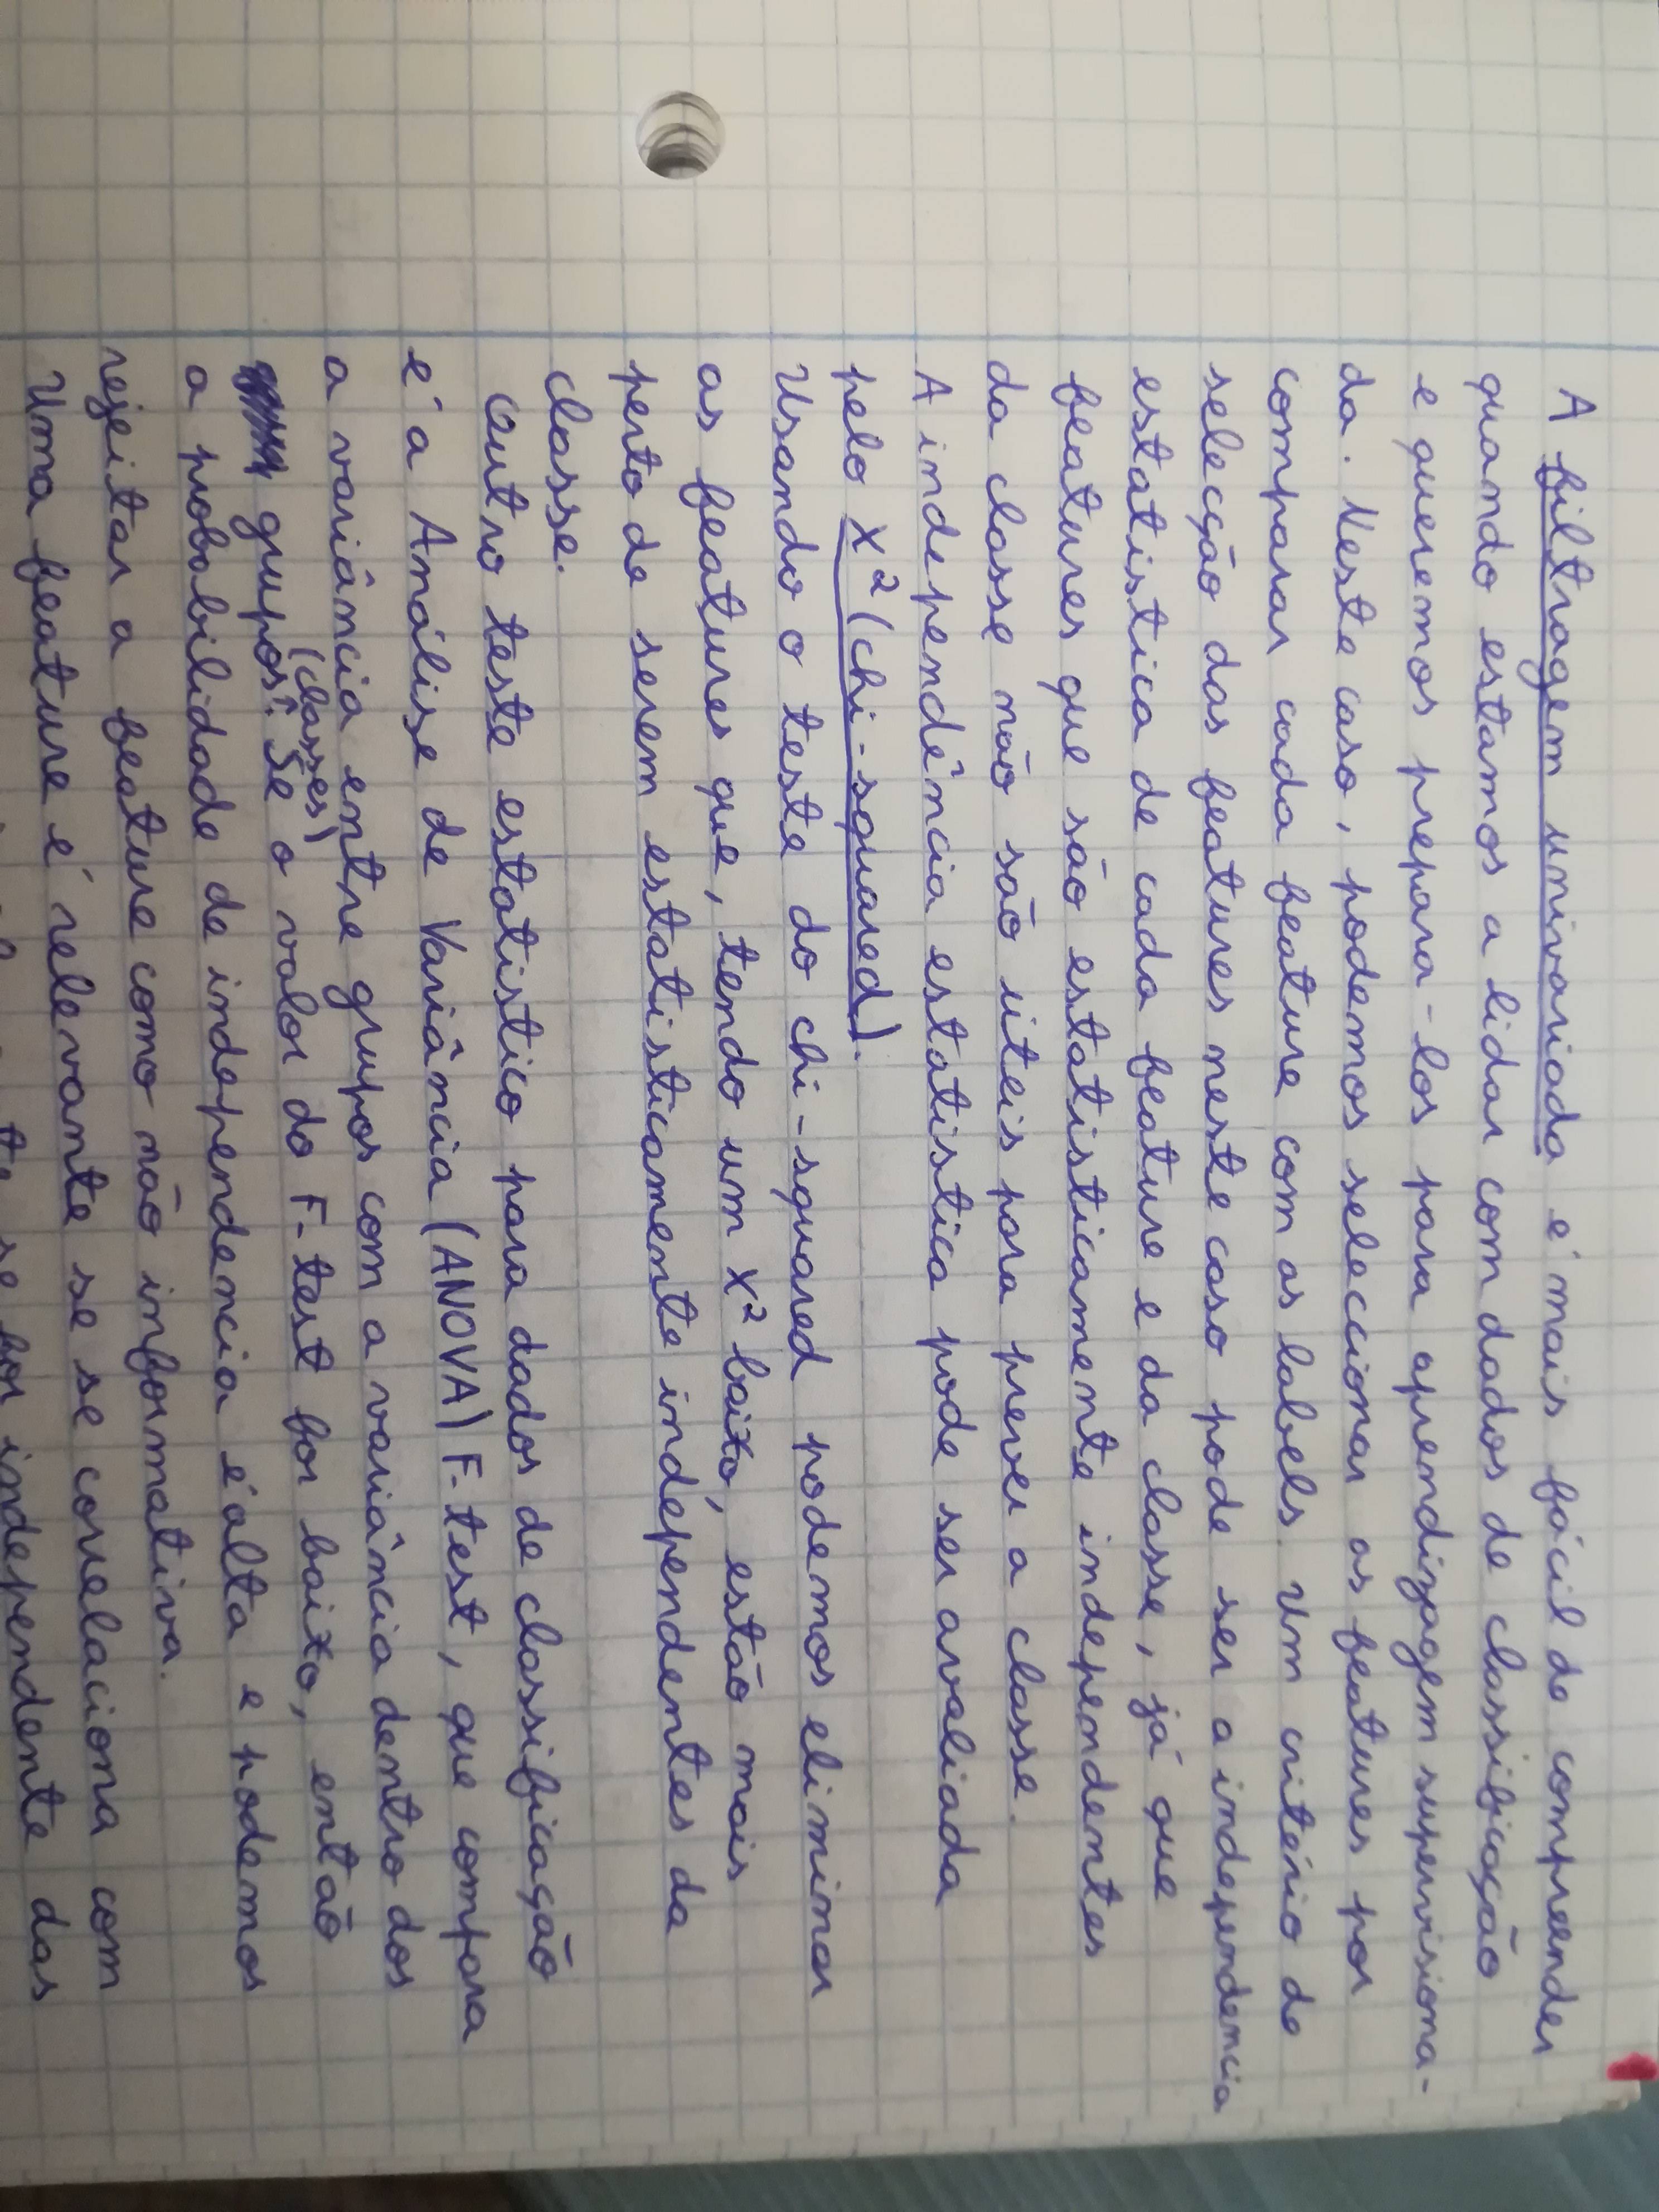 A filtragem univariada é mais fácil de compreender
quando estamos a lidar com dados de classificação
e queremos prepara-los para aprendizagem supervisiona-
da. Neste caso, podemos seleccionar as features por
comparar cada feature com as labels. Um critério de
selecção das features neste caso pode ser a independencia
estatística de cada feature e da classe, já que
features que são estatisticamente independentes
da classe não são uteis para prever a classe.
A independência estatística pode ser avaliada
pelo X² (chi-squared).
Usando o teste do chi-squared podemos eliminar
as features que, tendo um X² baixo, estão mais
perto de serem estatisticamente independentes da
classe.
Outro teste estatístico para dados de classificação
é a Análise de Variância (ANOVA) F-test, que compara
a variância entre grupos com a variância dentro dos
(classes)
grupos. Se o valor do F-test for baixo, então
a probabilidade de independencia é alta e podemos
rejeitar a feature como não informativa.
Uma feature é relevante se se correlaciona com
se for independente das